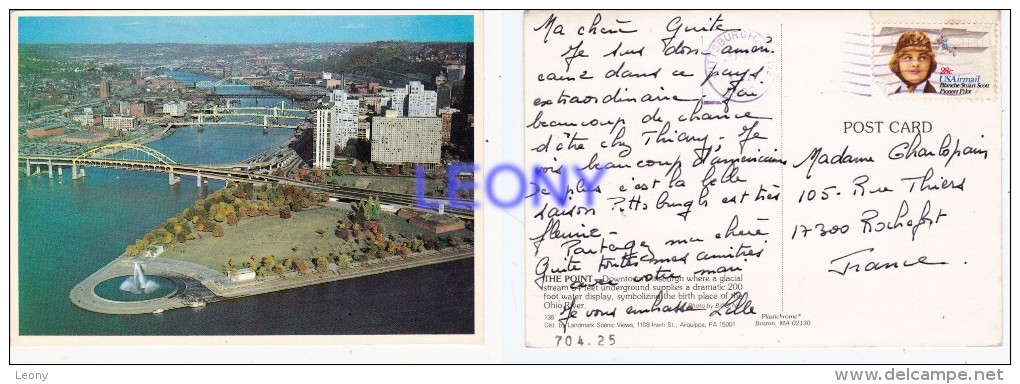 LEONY
Ma chère Guite
Je suis bien améri-
caine dans ce pays
extraordinaire. J'ai
beaucoup de chance
d'être chez Thiany. Je
vois beaucoup d'américains
De plus c'est la belle
saison Pittsburgh est très
fleurie -
Partagez ma chère
Guite toutes mes amitiés
avec votre mari.
Je vous embrasse Lille
SBURGH
28c
USAirmail
Blanche Stuart Scott
Pioneer Pilot
POST CARD
Madame Charlopain
105 - Rue Thiers
17300 Rochefort
France
THE POINT - Downtown Pittsburgh where a glacial
stream 54 feet underground supplies a dramatic 200
foot water display, symbolizing the birth place of the
Ohio River.
Photo by
138
Dist. by Landmark Scenic Views, 1108 Irwin St., Aliquippa, PA 15001
Plastichrome®
Boston, MA 02130
704.25
http://www.delcampe.net